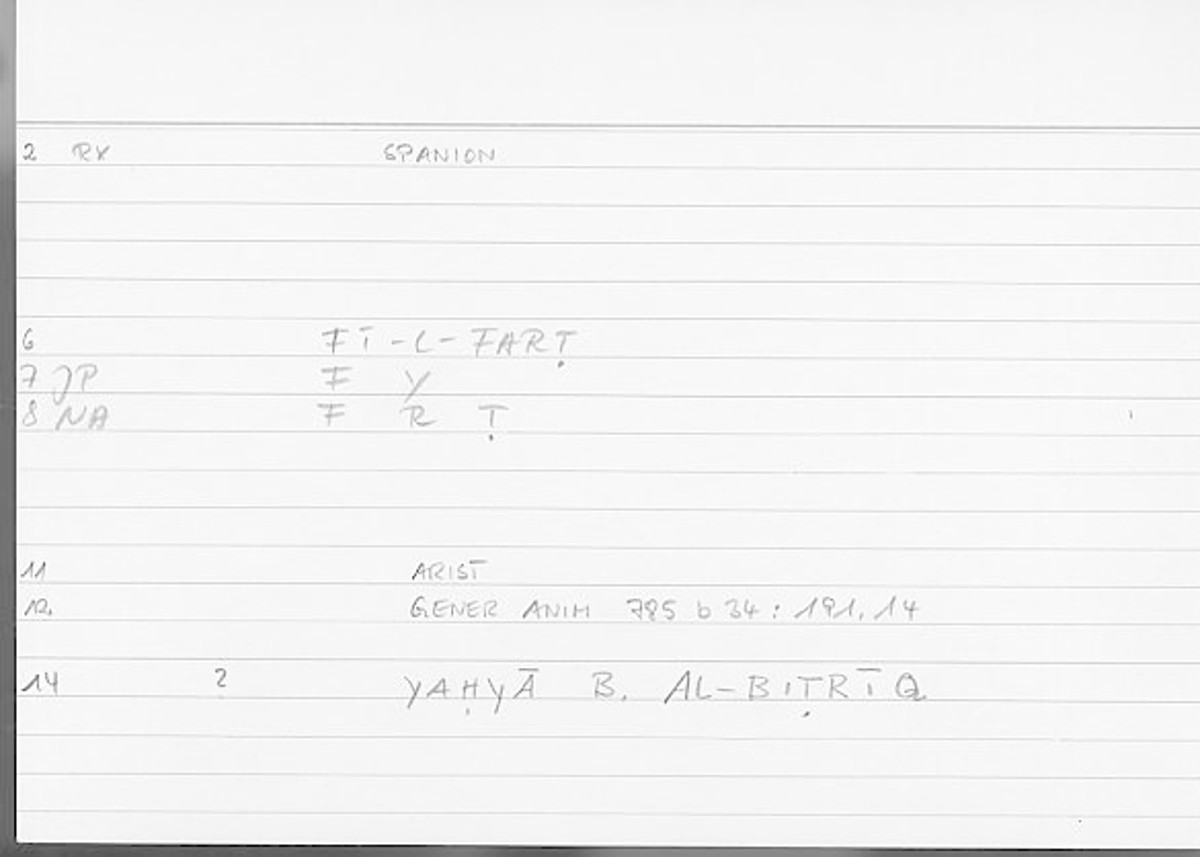 2 RX SPANION
6 FĪ-L-FARṬ
7 JP F Y
8 NA F R Ṭ
11 ARIST
12. GENER ANIM 785 b 34 : 191, 14
14 2 YAḤYĀ B. AL-BIṬRĪQ